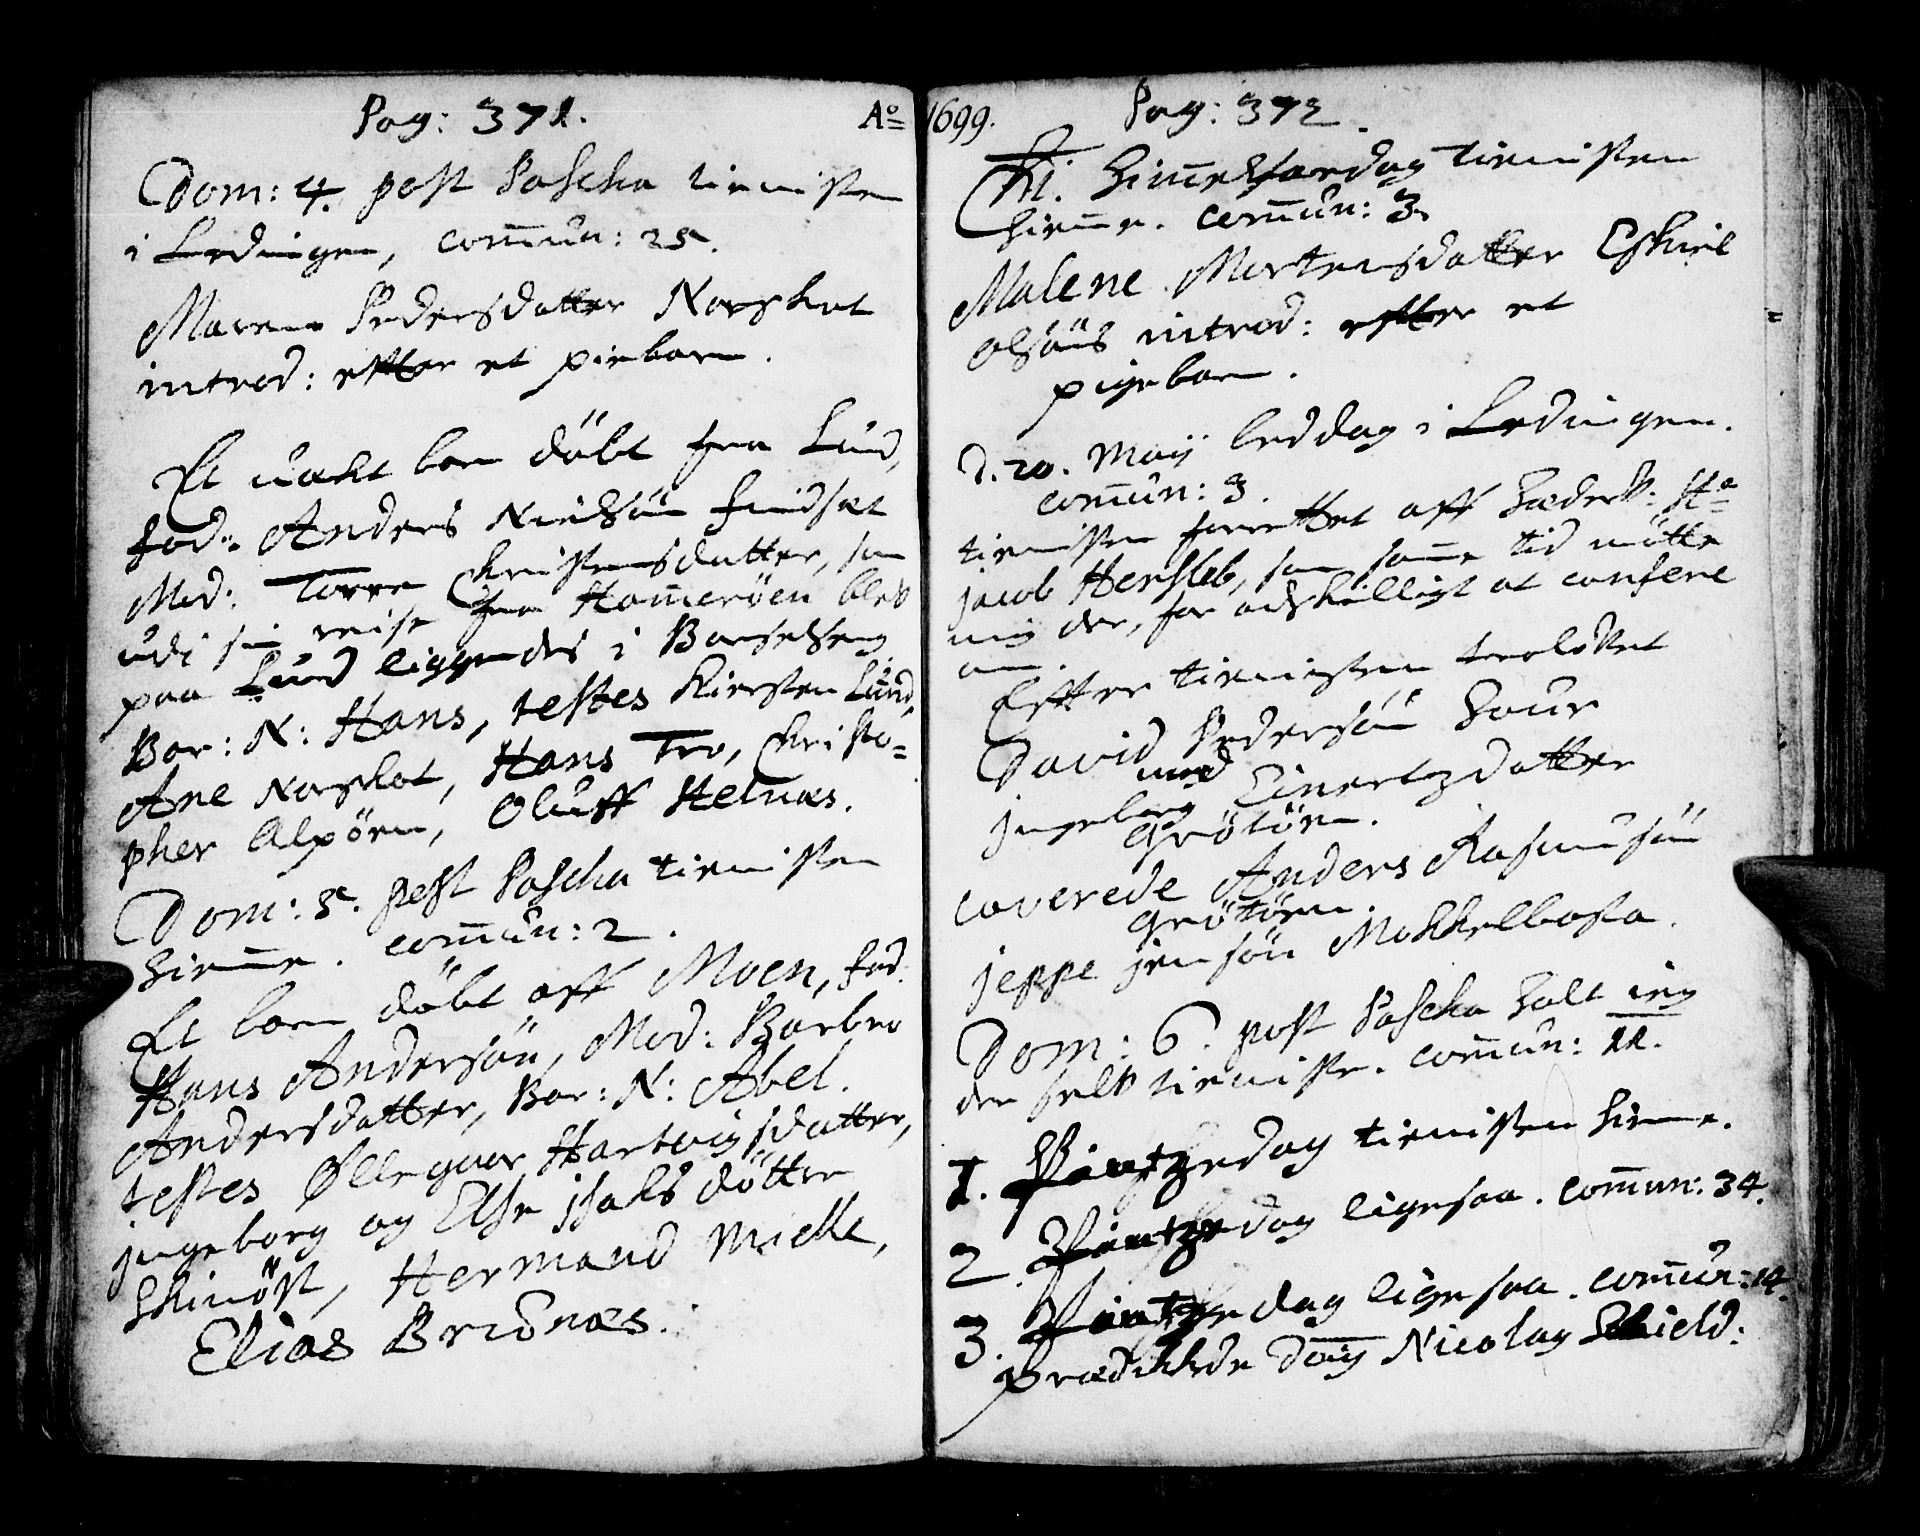 Pag: 371.
Dom: 4. post Pascha tienisten
i Lødingen, com̄un: 25.
Maren Pedersdatter Norskot
introd: efter et pieborn.
Et uækt born döbt fra Lund,
fad: Anders Nielsön
Mod: Torre Christensdatter, som
udi sin reise fra Ham̄eröen blef
paa Lund liggendes i Barselseng
Bar: N: Hans, testes Kiersten Lund,
Ane Norskot, Hans Trö, Christo=
pher Alpöen, Oluff Helnæs.
Dom: 5. post Pascha tienisten
hiem̄e. com̄un: 2.
Et born döbt aff Moen, fad:
Hans Andersön, Mod: Barbro
Andersdatter, Bar: N: Abel.
testes Øllegaar Hartvigsdatter,
jngeborg og Else jsaks döttre
Skinöst, Hermand Mielle,
Elias Bridnæs.
A° 1699.
Pag: 372.
Chri. Him̄elfaredag tienisten
hiem̄e. com̄un: 3.
Malene Mortensdatter Eskiel
olsöns introd: effter et
pigeborn.
d. 20. Maij beddag i Lødingen.
com̄un: 3.
tienisten forrettet aff Hæderl: Hr
jacob Hersleb, som sam̄e tid mötte
mig der, for adskilligt at confere
om.
Effter tienisten trolofvet
David Pedersön
med
jngeborg Einertzdatter
Grötöen.
caverede Anders Rasmusön
Grötöen.
jeppe jensön
Dom: 6. post Pascha Holt ieg
der self tieniste. com̄un: 11.
1. Pintzedag tienisten hiem̄e.
2. Pintzedag ligesaa. com̄un: 34.
3. Pintzedag ligesaa. com̄un: 14.
prædikede Nicolay Schield: